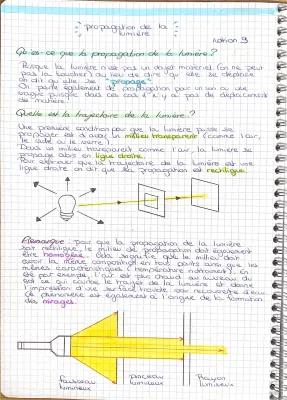 propagation de la
lumière
notion 3
Qu'est-ce que la propagation de la lumière ?
Puisque la lumière n'est pas un objet matériel (on ne peut
pas la toucher) au lieu de dire qu'elle se déplace
on dit qu'elle se "propage".
On parle également de propagation pour un son ou une
vague puisque dans ces cas il n'y a pas de déplacement
de matière !
Quelle est la trajectoire de la lumière ?
Une première condition pour que la lumière puisse se
propager est d'avoir un milieu transparent (comme l'air,
le vide ou le verre).
Dans un milieu transparent comme l'air, la lumière se
propage alors en ligne droite.
Pour exprimer que la trajectoire de la lumière est une
ligne droite on dit que sa propagation est rectiligne.
Remarque : pour que la propagation de la lumière
soit rectiligne, le milieu de propagation doit également
être homogène. Cela signifie que le milieu doit
avoir la même composition en tout points ainsi que les
mêmes caractéristiques (température notamment). En
été par exemple, l'air est plus chaud au niveau du
sol ce qui courbe le trajet de la lumière et donne
l'impression d'une surface trouble par recouverte d'eau.
Ce phénomène est également à l'origine de la formation
des mirages.
faisceau
lumineux
pinceau
lumineux
Rayon
lumineux